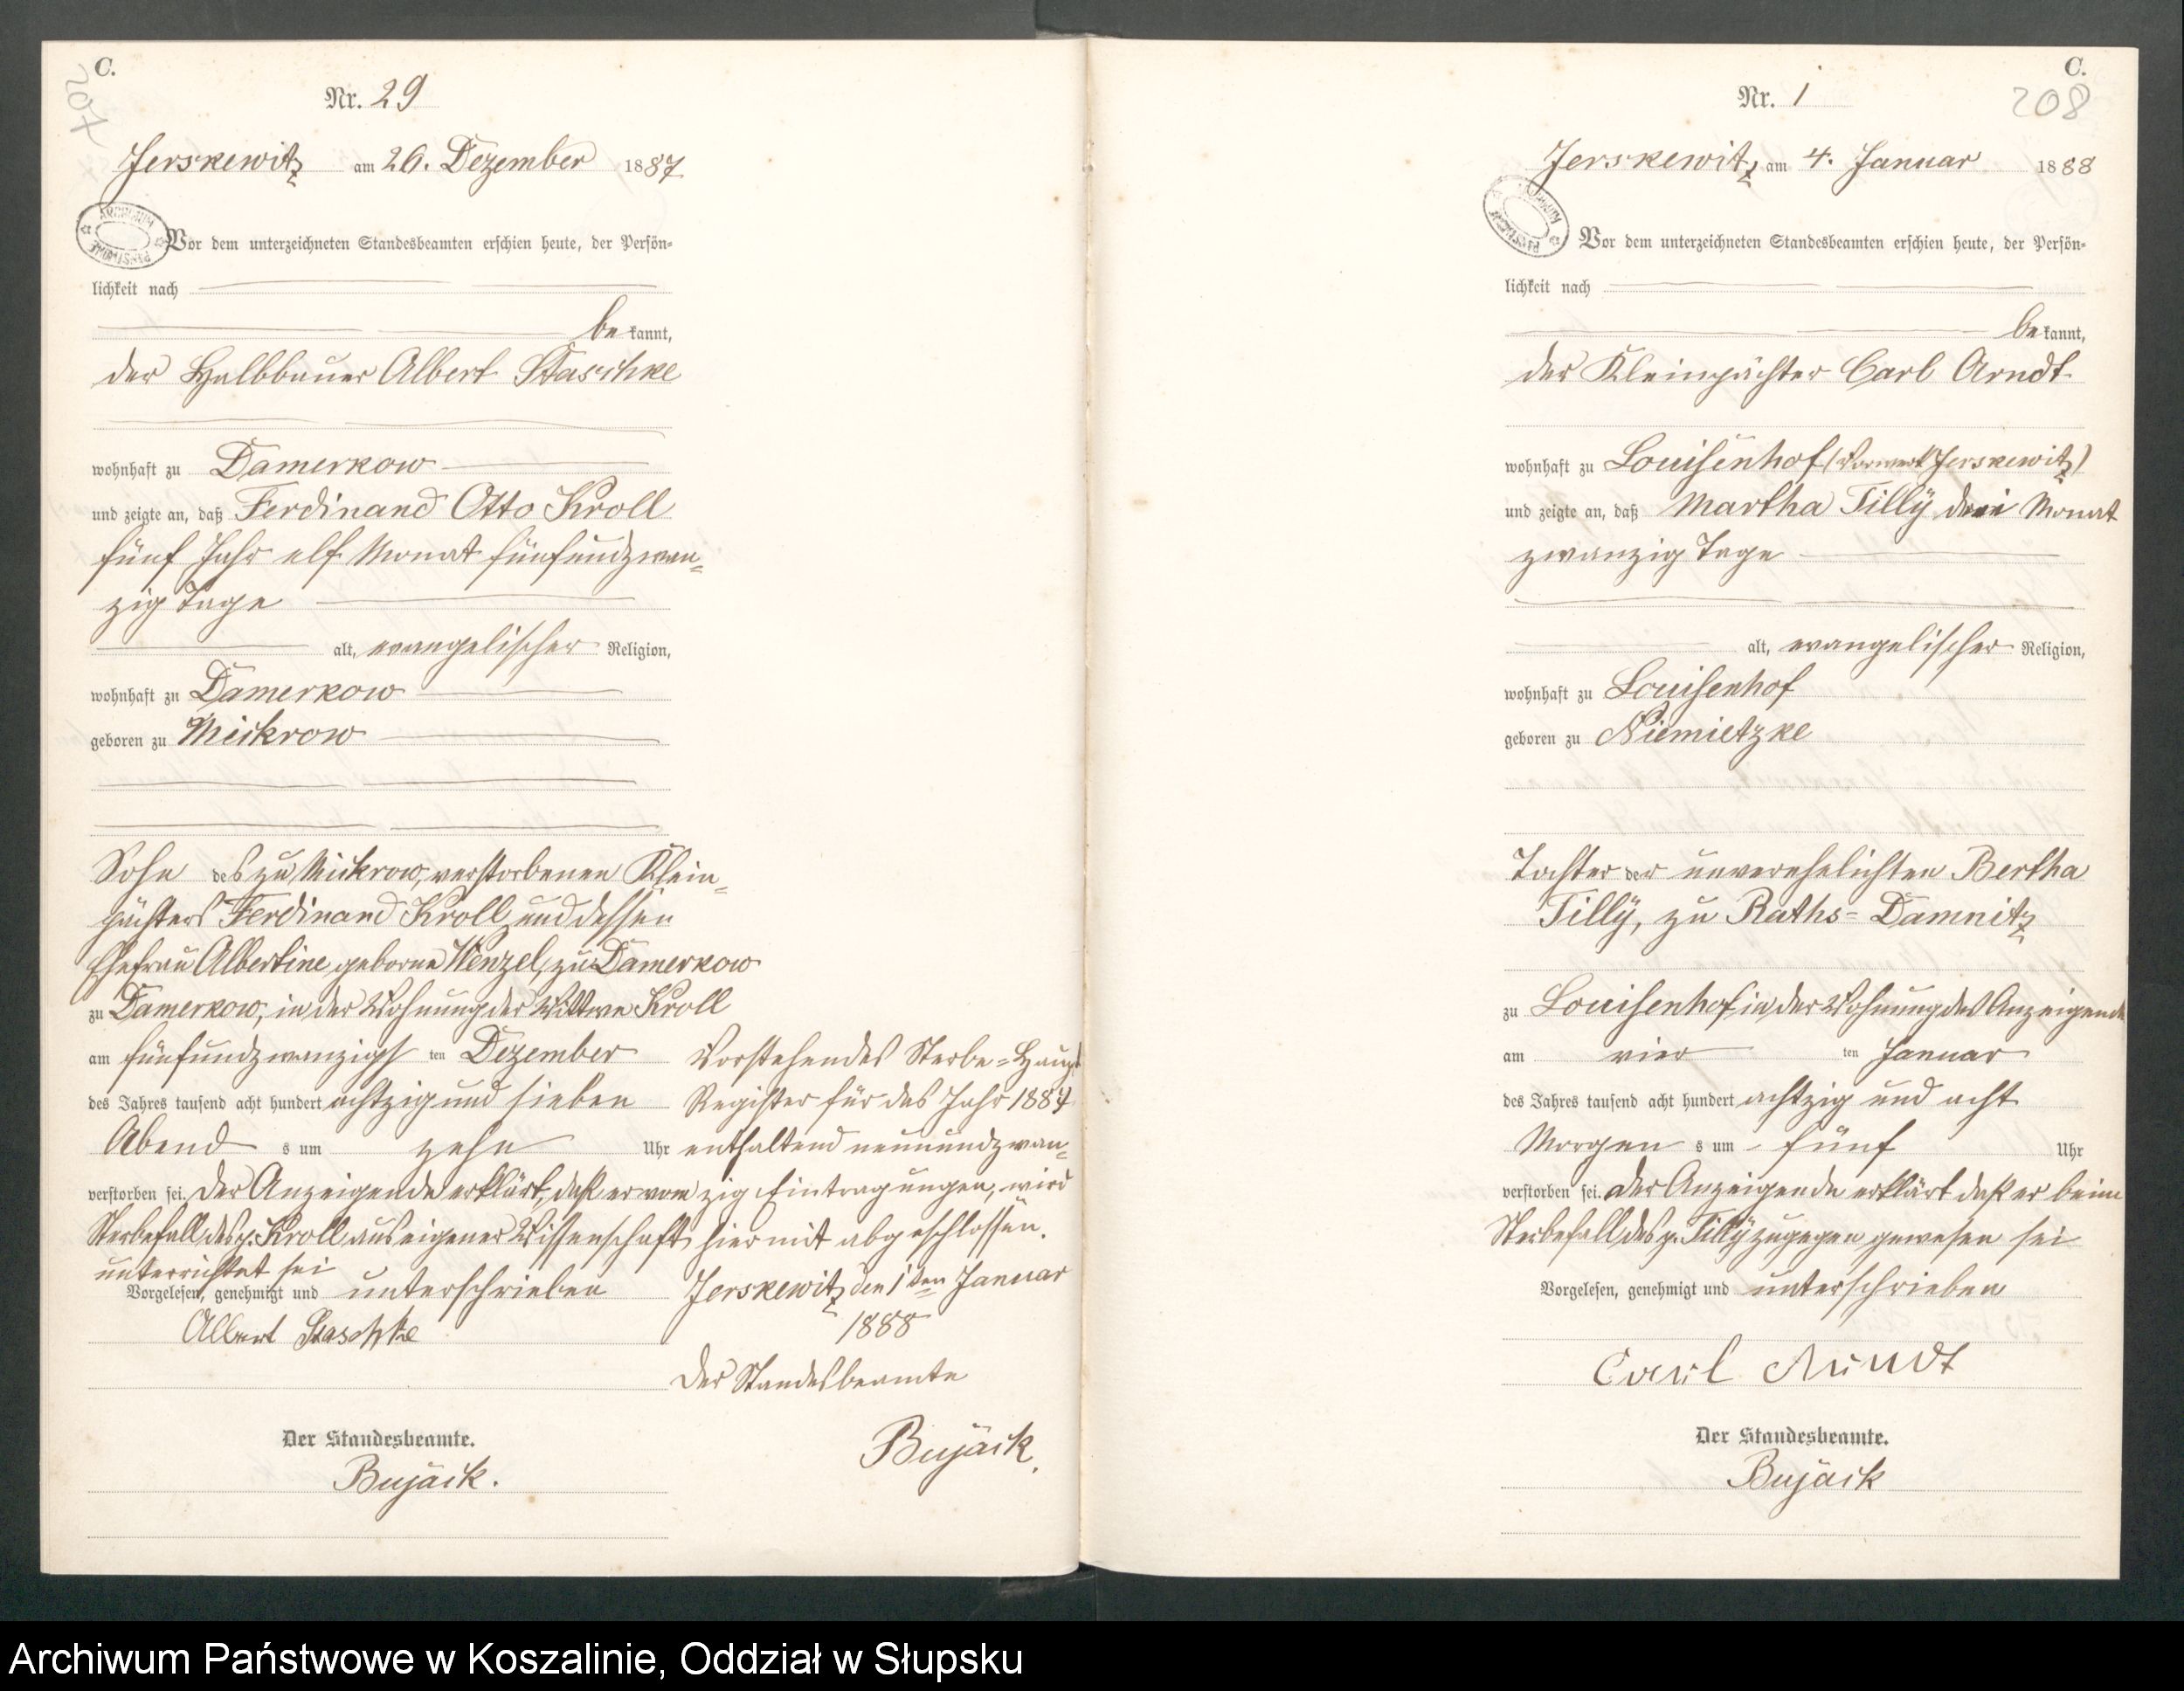 C.
207
Nr. 29
Jerskewitz am 26. Dezember 1887
ARCHIWUM PAŃSTWOWE
Vor dem unterzeichneten Standesbeamten erschien heute, der Persön-
lichkeit nach
be kannt,
der Halbbauer Albert Staschke
wohnhaft zu Damerkow
und zeigte an, daß Ferdinand Otto Kroll
fünf Jahr elf Monat fünfundzwan-
zig Tage
alt, evangelischer Religion,
wohnhaft zu Damerkow
geboren zu Mickrow
Sohn des zu Mickrow, verstorbenen Klein-
pächters Ferdinand Kroll und dessen
Ehefrau Albertine geborne Wenzel, zu Damerkow
zu Damerkow, in der Wohnung der Wittwe Kroll
am fünfundzwanzigst ten Dezember
des Jahres tausend acht hundert achtzig und sieben
Abend s um zehn Uhr
verstorben sei. Der Anzeigende erklärt, daß er vom
Sterbefall des p. Kroll aus eigener Wissenschaft
unterrichtet sei
Vorgelesen, genehmigt und unterschrieben
Albert Staschke
Der Standesbeamte.
Bujack.
Vorstehendes Sterbe-Haupt
Register für das Jahr 1887
enthaltend neunundzwan-
zig Eintragungen, wird
hiermit abgeschlossen.
Jerskewitz den 1ten Januar
1888
Der Standesbeamte
Bujack.
C.
208
Nr. 1
Jerskewitz am 4. Januar 1888
ARCHIWUM PAŃSTWOWE
Vor dem unterzeichneten Standesbeamten erschien heute, der Persön-
lichkeit nach
be kannt,
der Kleinpächter Carl Arndt
wohnhaft zu Louisenhof (Vorwerk Jerskewitz)
und zeigte an, daß Martha Tilly drei Monat
zwanzig Tage
alt, evangelischer Religion,
wohnhaft zu Louisenhof
geboren zu Niemietzke
Tochter der unverehelichten Bertha
Tilly, zu Raths-Damnitz
zu Louisenhof in der Wohnung des Anzeigende
am vier ten Januar
des Jahres tausend acht hundert achtzig und acht
Morgen s um fünf Uhr
verstorben sei. Der Anzeigende erklärt daß er beim
Sterbefall des p. Tilly zugegen gewesen sei
Vorgelesen, genehmigt und unterschrieben
Carl Arndt
Der Standesbeamte.
Bujack
Archiwum Państwowe w Koszalinie, Oddział w Słupsku